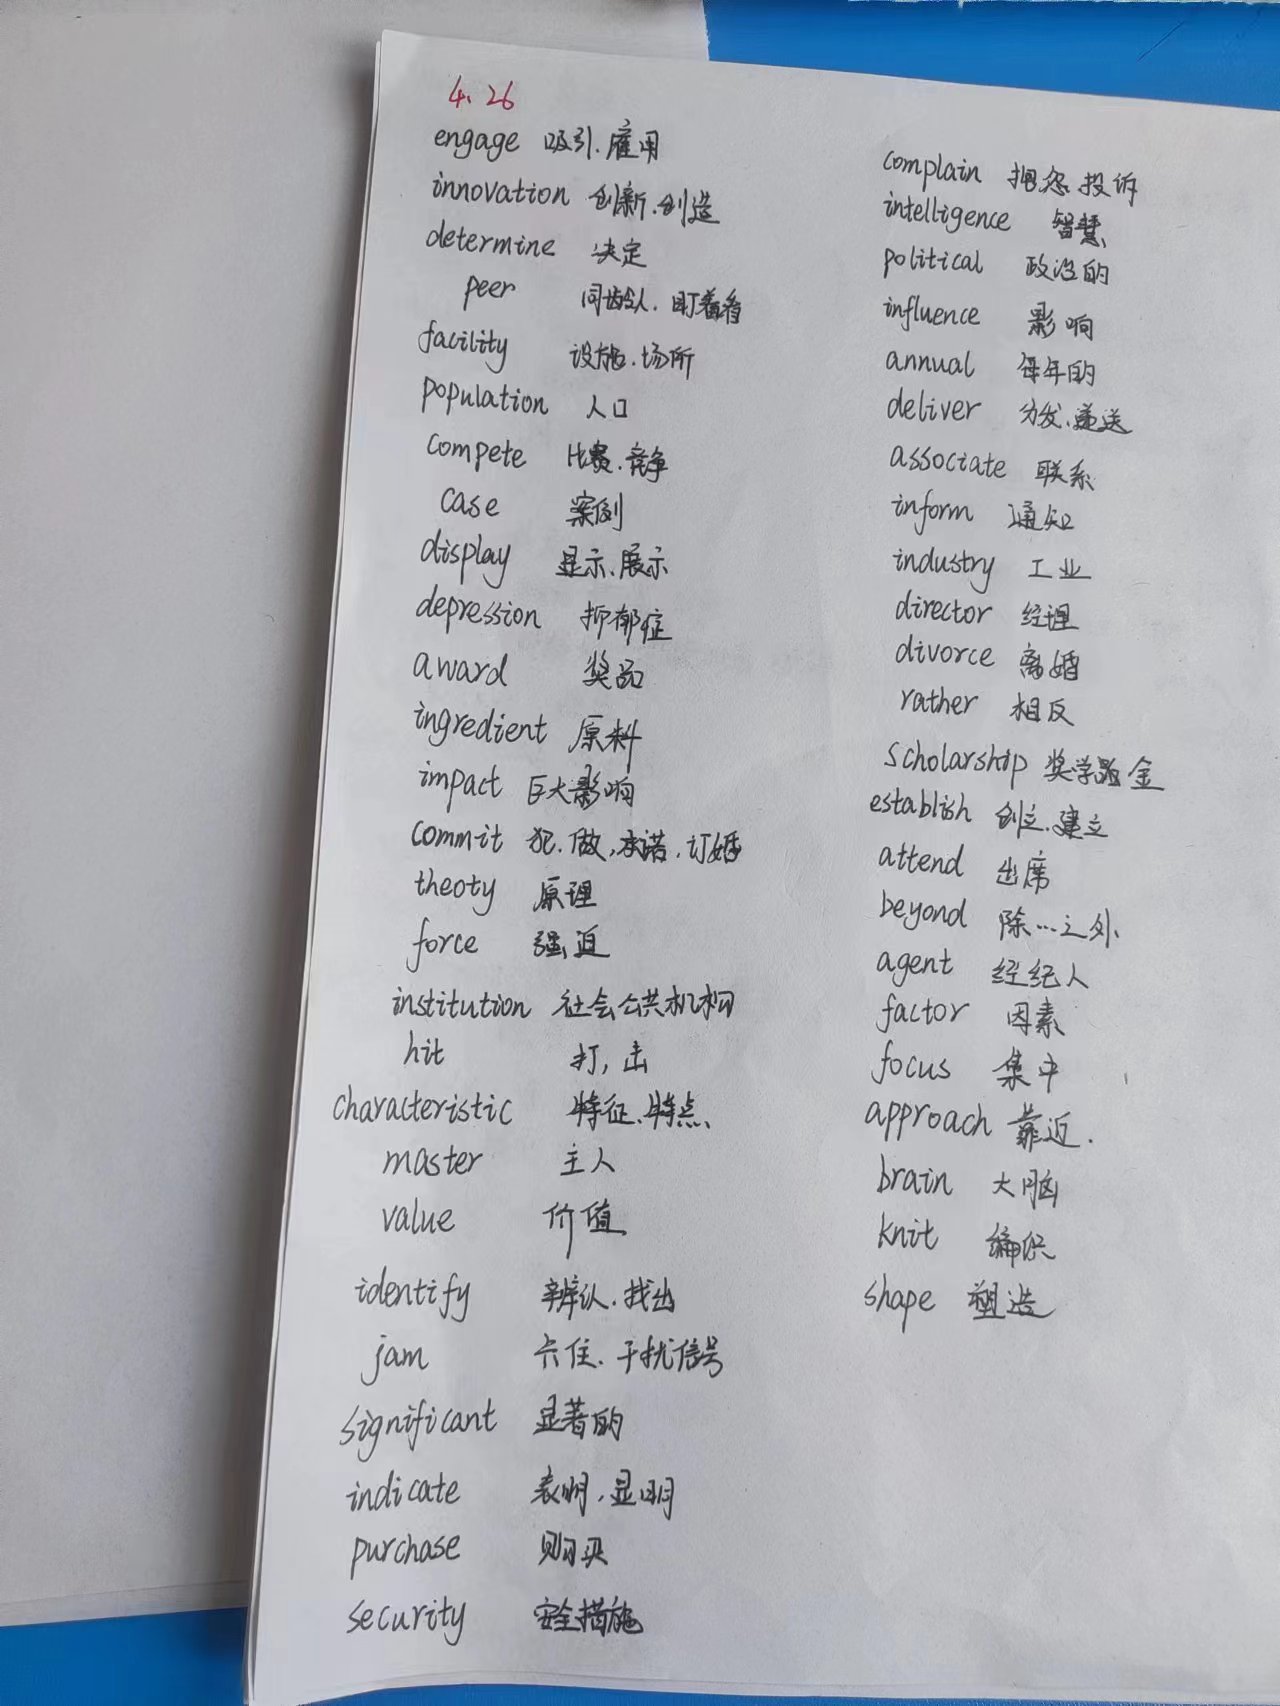 4.26
engage 吸引.雇用
innovation 创新.创造
determine 决定
peer 同龄人.盯着看
facility 设施.场所
population 人口
compete 比赛.竞争
case 案例
display 显示.展示
depression 抑郁症
award 奖品
ingredient 原料
impact 巨大影响
commit 犯.做,承诺.订婚
theoty 原理
force 强迫
institution 社会公共机构
hit 打,击
characteristic 特征.特点、
master 主人
value 价值
identify 辨认.找出
jam 卡住.干扰信号
significant 显著的
indicate 表明,显明
purchase 购买
security 安全措施
complain 抱怨.投诉
intelligence 智慧
political 政治的
influence 影响
annual 每年的
deliver 分发.递送
associate 联系
inform 通知
industry 工业
director 经理
divorce 离婚
rather 相反
scholarship 奖学金
establish 创立.建立
attend 出席
beyond 除…之外
agent 经纪人
factor 因素
focus 集中
approach 靠近.
brain 大脑
knit 编织
shape 塑造